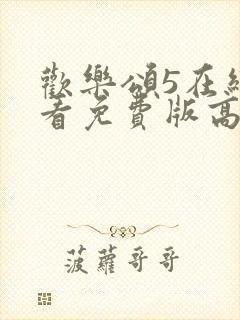 歡樂頌5在線
看免費版高
菠蘿哥哥